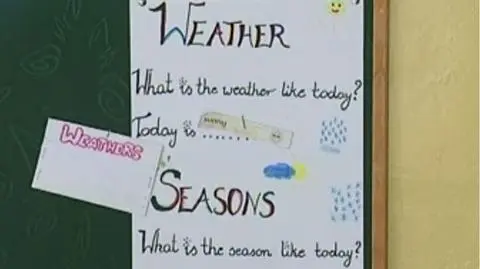 WEATHER
What is the weather like today?
Today is ........
sunny
WEATHERS
SEASONS
What is the season like today?